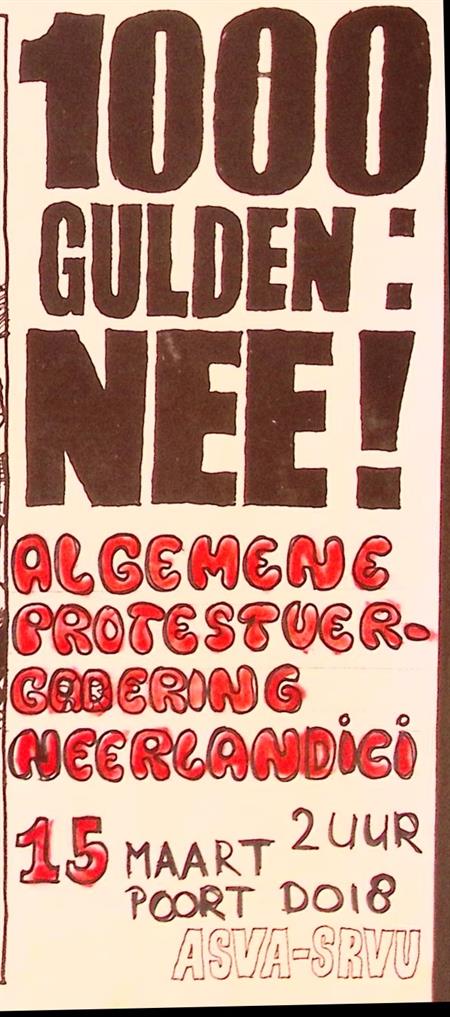 1000
GULDEN:
NEE!
ALGEMENE
PROTESTVER-
GADERING
NEERLANDICI
15 MAART 2 UUR
POORT D018
ASVA-SRVU